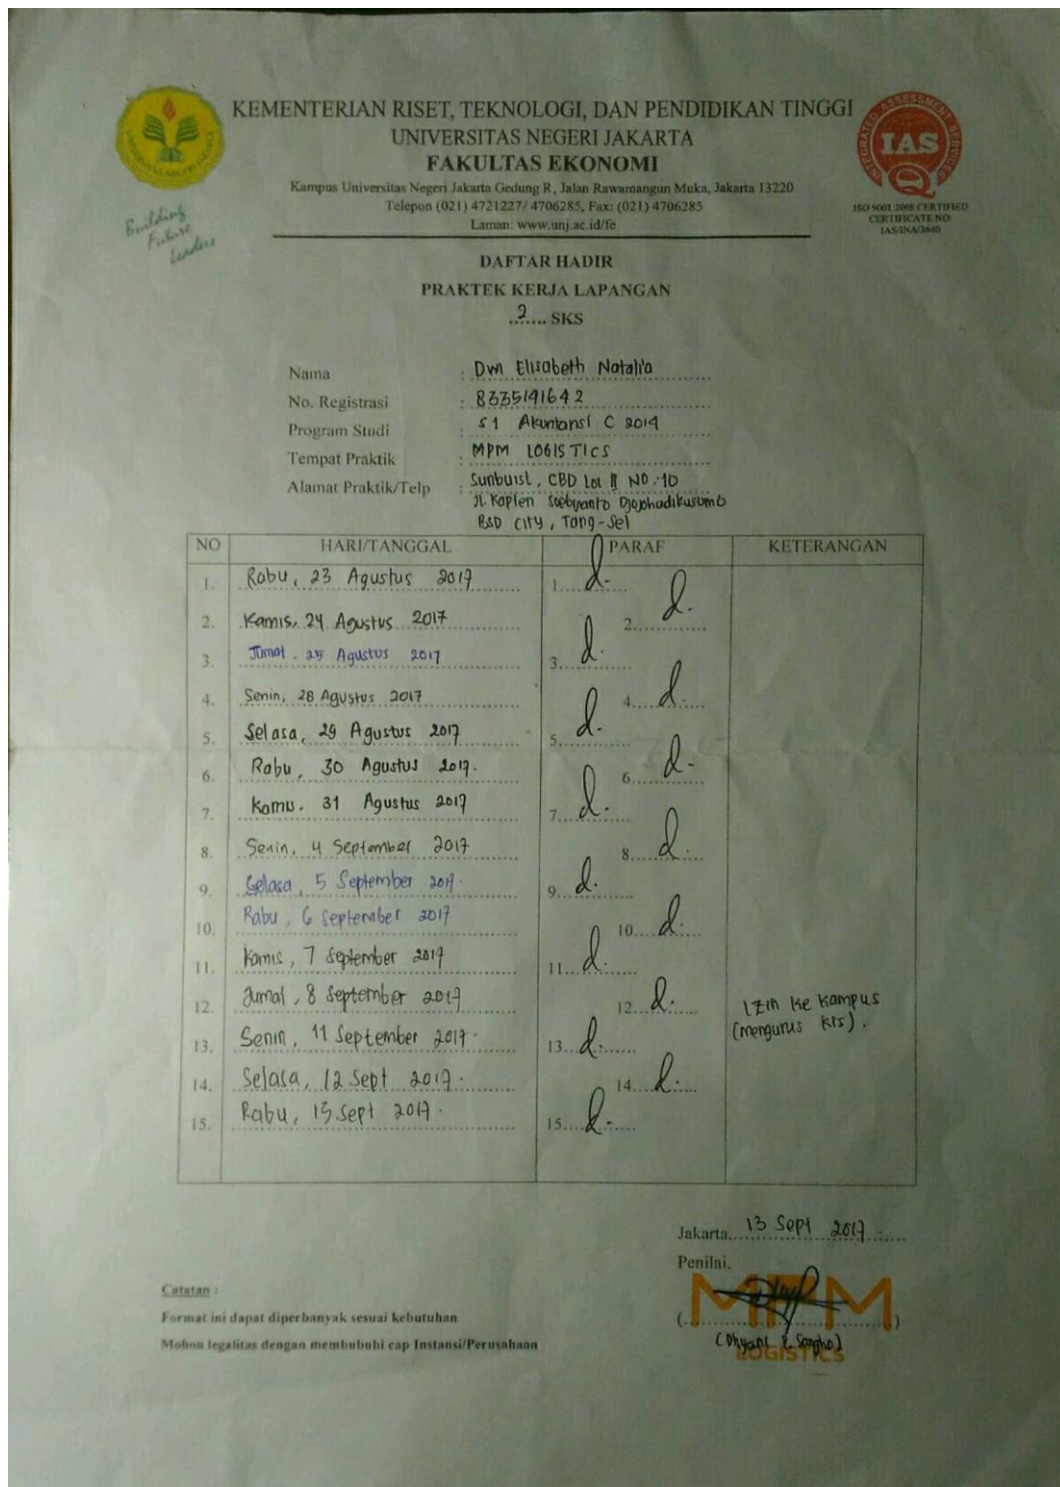 KEMENTERIAN RISET, TEKNOLOGI, DAN PENDIDIKAN TINGGI
UNIVERSITAS NEGERI JAKARTA
FAKULTAS EKONOMI
Kampus Universitas Negeri Jakarta Gedung R, Jalan Rawamangun Muka, Jakarta 13220
Telepon (021) 4721227/ 4706285, Fax: (021) 4706285
Laman: www.unj.ac.id/fe
UNIVERSITAS NEGERI JAKARTA
Building
Future
Leaders
INTEGRATED ASSESSMENT SERVICES
IAS
Q
ISO 9001:2008 CERTIFIED
CERTIFICATE NO:
IAS/INA/3640
DAFTAR HADIR
PRAKTEK KERJA LAPANGAN
..2.... SKS
Nama : Dwi Elisabeth Natalia
No. Registrasi : 8335141642
Program Studi : S1 Akuntansi C 2014
Tempat Praktik : MPM LOGISTICS
Alamat Praktik/Telp : CBD Lot II NO.10
Jl. Kapten Djojohadikusumo
BSD City, Tang-Sel
NO HARI/TANGGAL PARAF KETERANGAN
1. Rabu, 23 Agustus 2017 1. d.
2. Kamis, 24 Agustus 2017 2. d.
3. Jumat. 25 Agustus 2017 3. d.
4. Senin, 28 Agustus 2017 4. d.
5. Selasa, 29 Agustus 2017 5. d.
6. Rabu, 30 Agustus 2017. 6. d.
7. Kamis. 31 Agustus 2017 7. d.
8. Senin, 4 September 2017 8. d.
9. Selasa, 5 September 2017. 9. d.
10. Rabu, 6 September 2017 10. d.
11. Kamis, 7 September 2017 11. d.
12. Jumat, 8 September 2017 12. d. Izin ke Kampus
(mengurus krs).
13. Senin, 11 September 2017. 13. d.
14. Selasa, 12 Sept 2017. 14. d.
15. Rabu, 13 Sept 2017. 15. d.
Jakarta, 13 Sept 2017
Penilai,
MPM
(Dhyani R. )
LOGISTICS
Catatan :
Format ini dapat diperbanyak sesuai kebutuhan
Mohon legalitas dengan membubuhi cap Instansi/Perusahaan